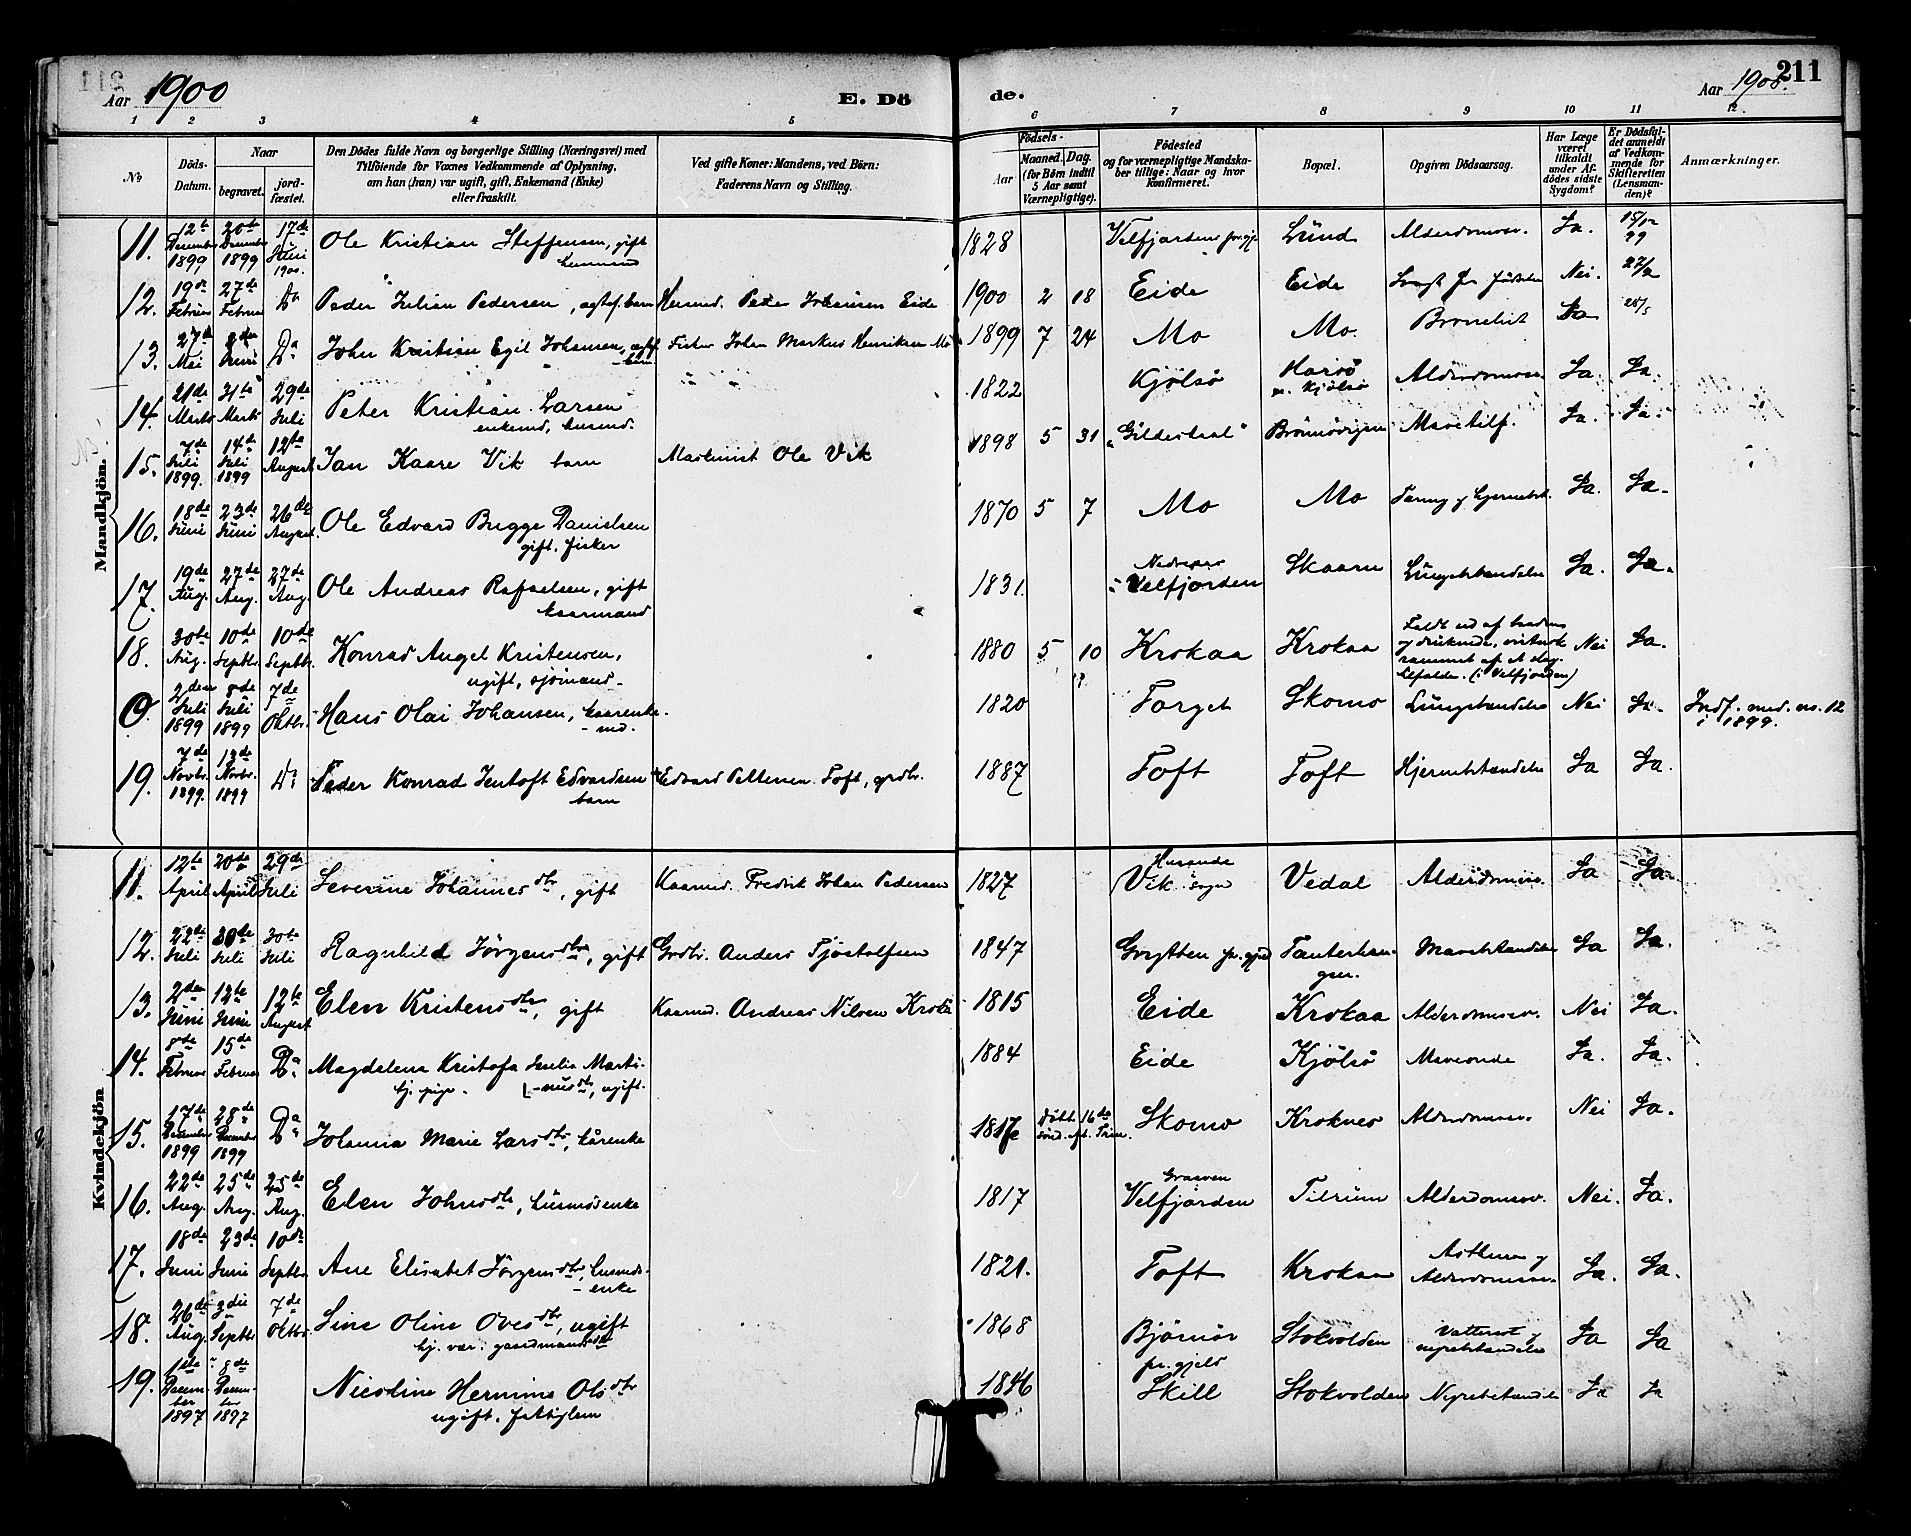 Aar 1900
E. Dö
de.
Aar 1900.
211
1 2 3 4 5 6 7 8 9 10 11 12
No
Döds-Datum.
Naar
begravet.
jord-fæstet.
Den Dödes fulde Navn og borgerlige Stilling (Næringsvei) med
Tilföiende for Voxnes Vedkommende af Oplysning,
om han (hun) var ugift, gift, Enkemand (Enke)
eller fraskilt.
Ved gifte Koner: Mandens, ved Börn:
Faderens Navn og Stilling.
Födsels-
Aar
Maaned. Dag.
(for Börn indtil
5 Aar samt
Værnepligtige).
Födested
og for værnepligtige Mandska-
ber tillige: Naar og hvor
konfirmeret.
Bopæl.
Opgiven Dödsaarsag.
Har Læge
været
tilkaldt
under Af-
dödes sidste
Sygdom?
Er Dödsfal-
det anmeldt
af Vedkom-
mende for
Skifteretten
(Lensman-
den)?
Anmærkninger.
Mandkjön.
11. 12te December 1899 20de December 1899 17de Juni 1900. Ole Kristian Steffensen, gift husmand 1828 Velfjordens Lund Alderdomssv. Ja. 15/12 99
12. 19de Februar 27de Februar Do Peder Julian Pedersen, ægtef. barn Husmd. Peder Johansen Eide 1900 2 18 Eide Eide Svagt fr. Födselen Nei. 27/2
13. 27de Mai Juni Do John Kristian Egil Johansen, barn Fisker Johan Markus Henriksen Mo 1899 7 24 Mo Mo. Ja 28/5
14. 21de Marts 31te Marts 29de Juli Peter Kristian Larsen enkemd, husmd. 1822 Kjölsö Horsö p. Kjölsö Alderdomssv. Ja. Ja.
15. 7de Juli 1899. 14de Juli 1899 12te August Jan Kaare Vik barn Maskinist Ole Vik 1898 5 31 "Gildestraal" Brönnövigen Ja. Ja.
16. 18de Juni 23de Juni 26de August. Ole Edvard Brugge Danielsen gift. fisker 1870 5 7 Mo Mo Ja. Ja.
17. 19de Aug. 27de Aug. 27de Aug. Ole Andreas Rafaelsen, gift kaarmand 1831. Velfjorden Skaaren Lungebetændelse Ja. Ja.
18. 30te Aug. 10de Septbr. 10de Septbr. Konrad Angel Kristensen, ugift, sjömand. 1880 5 10 Krokaa Krokaa Faldt ud af baaden og druknede, (i Velfjorden) Nei Ja.
0. 2den Juli 1899 8de Juli 1899 7de Oktbr. Hans Olai Johansen, kaarenkemd. 1820 Torget Skomo Lungebetændelse Nei Ja. Indf. med. no. 12 i 1899.
19. 7de Novbr. 1899. 13de Novbr. 1899 Do Peder Konrad Jentoft Edvardsen barn Edvard Pettersen Toft, grdbr. 1887 Toft Toft Hjernebetændelse Ja Ja.
Kvindekjön
11. 12te April 20de April 29de Juli Severine Johannesdtr, gift Kaarmd. Fredrik Johan Pedersen 1827 Vik sogn Vedal Alderdomssv. Ja Ja.
12. 22de Juli 30de Juli 30te Juli Ragnhild Jörgensdtr, gift Grdbr. Anders Tjöstolfsen 1847 Grytten pr.gjeld Ja Ja.
13. 2den Juni 12te Juni 12te August Elen Kristensdtr, gift Kaarmd. Andreas Nilsen Krokå 1815 Eide Krokaa Alderdomssv. Nei Ja.
14. 8de Februar 15de Februar Do Magdelena Kristofa Julia Martinusdtr, ugift. tj. pige. 1884 Eide Kjölsö Maveonde Ja. Ja.
15. 17de December 1899 28de December 1899 Do Johanna Marie Larsdtr, kårenke 1817 döbt 16de sönd. eft. Trin. Skomo Kroknes Alderdomssv. Nei Ja.
16. 22de Aug. 25de Aug. 25de Aug. Elen Johnsdtr, husmdsenke 1817 Velfjorden Tilrum Alderdomssv. Nei. Ja.
17. 18de Juni 23de Juni 10de Septbr. Ane Elisabet Jörgensdtr, husmdsenke 1821. Toft Krokaa Asthma og Alderdomssv. Ja. Ja.
18. 26de Aug. 3die Septbr 7de Oktbr. Sine Oline Ovesdtr, ugift tj. vær: gaardmandsdtr 1868 Björnör pr.gjeld Stokvolden Vattersot og nyrebetændelse Ja Ja
19. 1ste December 1897 8de December 1897 Nicoline Hermine Olsdtr ugift. fattiglem 1846 Skill Stokvolden Nyrebetændelse Ja Ja